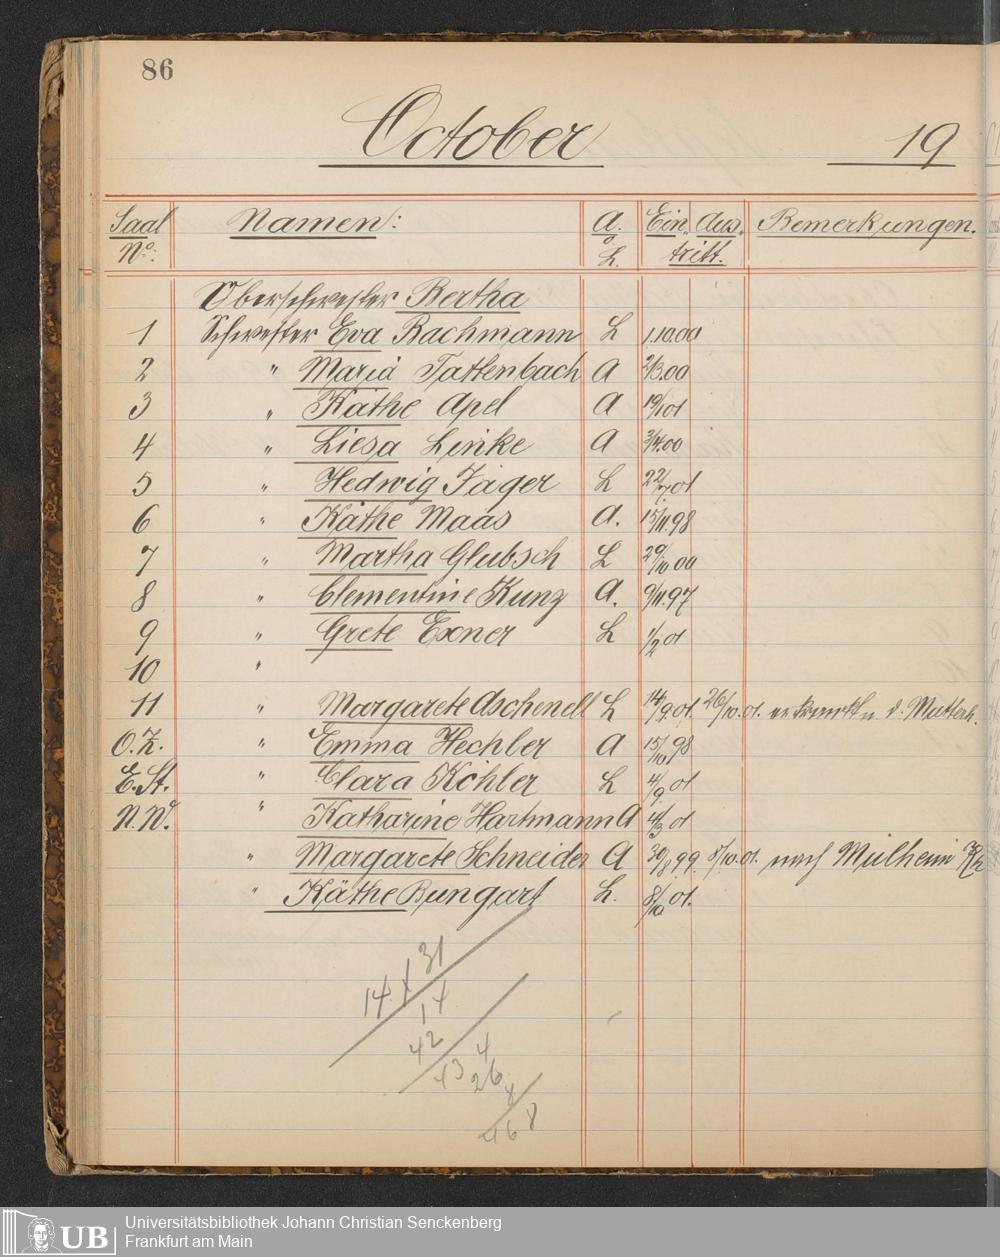 86
October 19
Saal No: Namen: A. L. Ein. Aus. tritt. Bemerkungen.
Oberschwester Bertha
1 Schwester Eva Bachmann L 1.10.00
2 " Maria Tattenbach A 2/3.00
3 " Käthe Apel A 19/1 01
4 " Liesa Linke A 3/4.00
5 " Hedwig Jäger L 22/7 01
6 " Käthe Maas A. 15/11.98
7 " Martha Glubsch L 29/10 00
8 " Clementine Kunz A. 9/11.97
9 " Grete Exner L 1/2 01
10 "
11 " Margarete Aschenell L 14/9.01. 26/10.01. erkrankt n. d. Mutterh.
O.Z. " Emma Hechler A 15/10 98
E.St. " Clara Köhler L 4/9 01
N.W. " Katharine Hartmann A 4/3 01
" Margarete Schneider A 30/8 99. 8/10.01. nach Mülheim
" Käthe Bungart L. 8/10 01.
14 x 31
14
42
43 4
26
8
46 8
UB Universitätsbibliothek Johann Christian Senckenberg
Frankfurt am Main